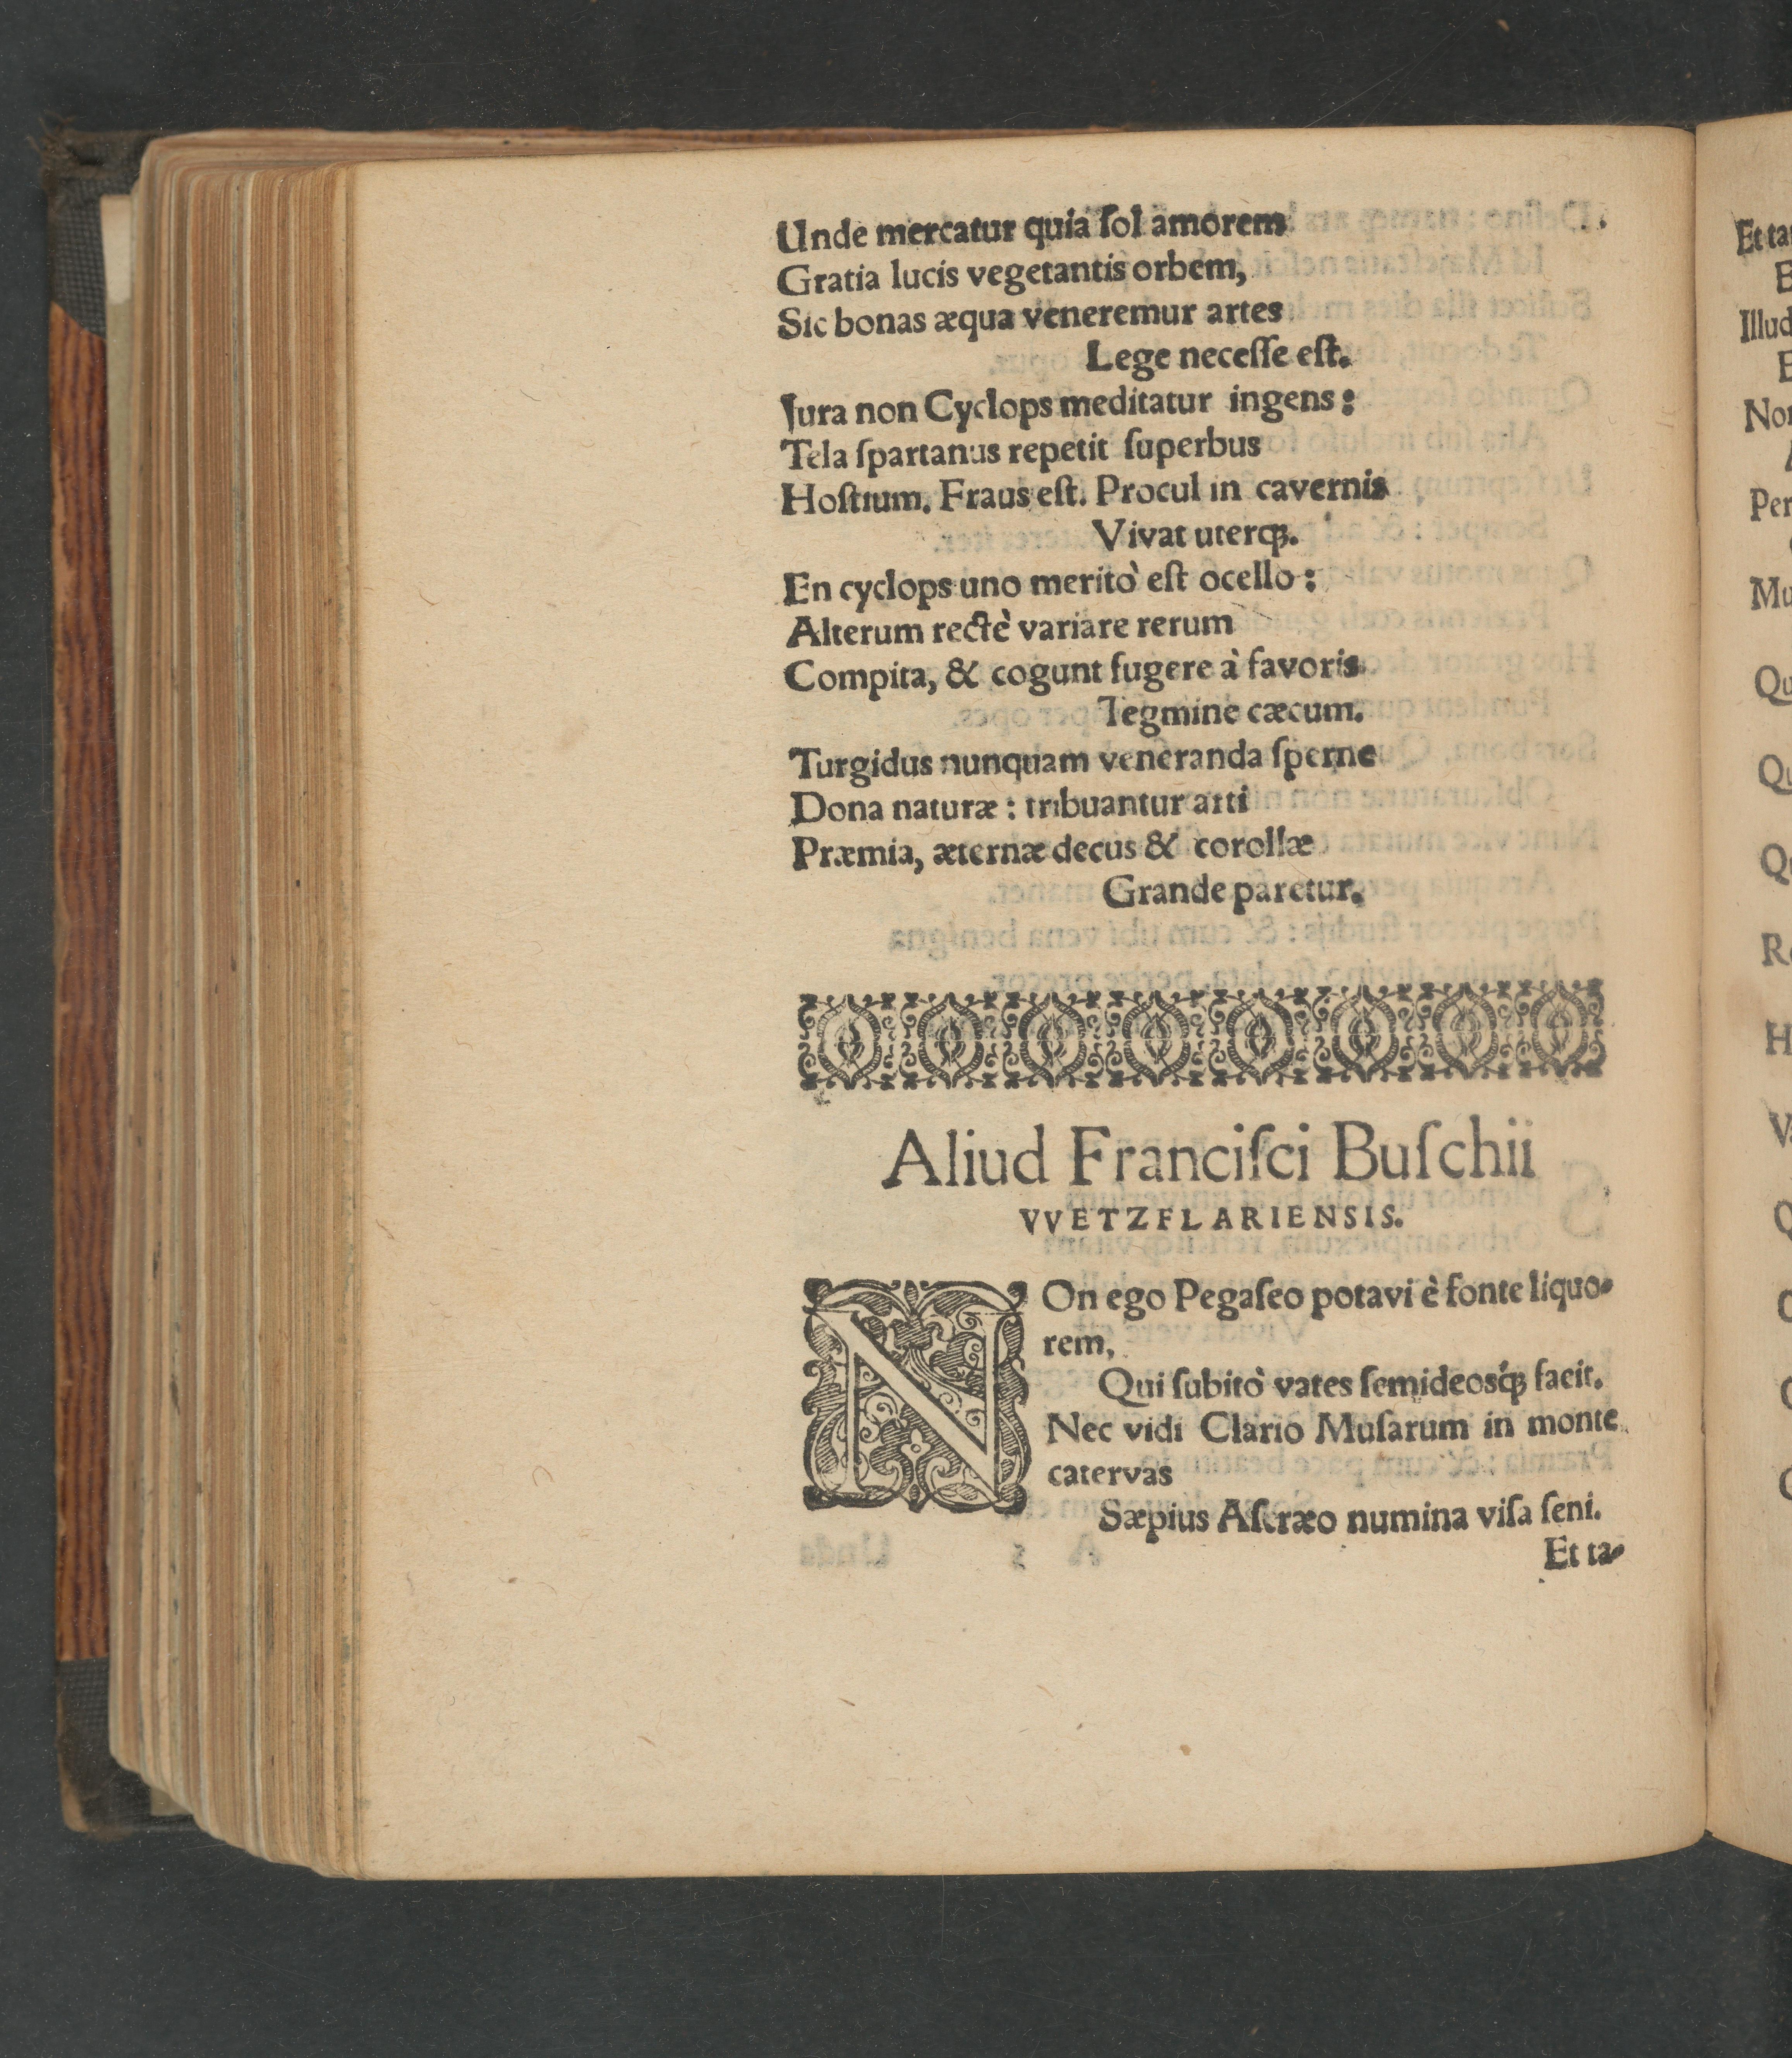 Unde mercatur quia ſol amorem
Gratia lucis vegetantis orbem,
Sic bonas æqua veneremur artes
Lege neceſſe eſt.
Jura non Cyclops meditatur ingens:
Tela ſpartanus repetit ſuperbus
Hoſtium. Fraus eſt. Procul in cavernis
Vivat uterqꝫ.
En cyclops uno meritò eſt ocello:
Alterum rectè variare rerum
Compita, & cogunt fugere à favoris
Tegmine cæcum.
Turgidus nunquam veneranda ſperne
Dona naturæ: tribuantur arti
Præmia, æternæ decus & corollæ
Grande paretur.
Aliud Franciſci Buſchii
VVETZFLARIENSIS.
NOn ego Pegaſeo potavi è fonte liquo-
rem,
Qui ſubitò vates ſemideosq́ꝫ facit.
Nec vidi Clario Muſarum in monte
catervas
Sæpius Aſcræo numina viſa ſeni.
Et ta-